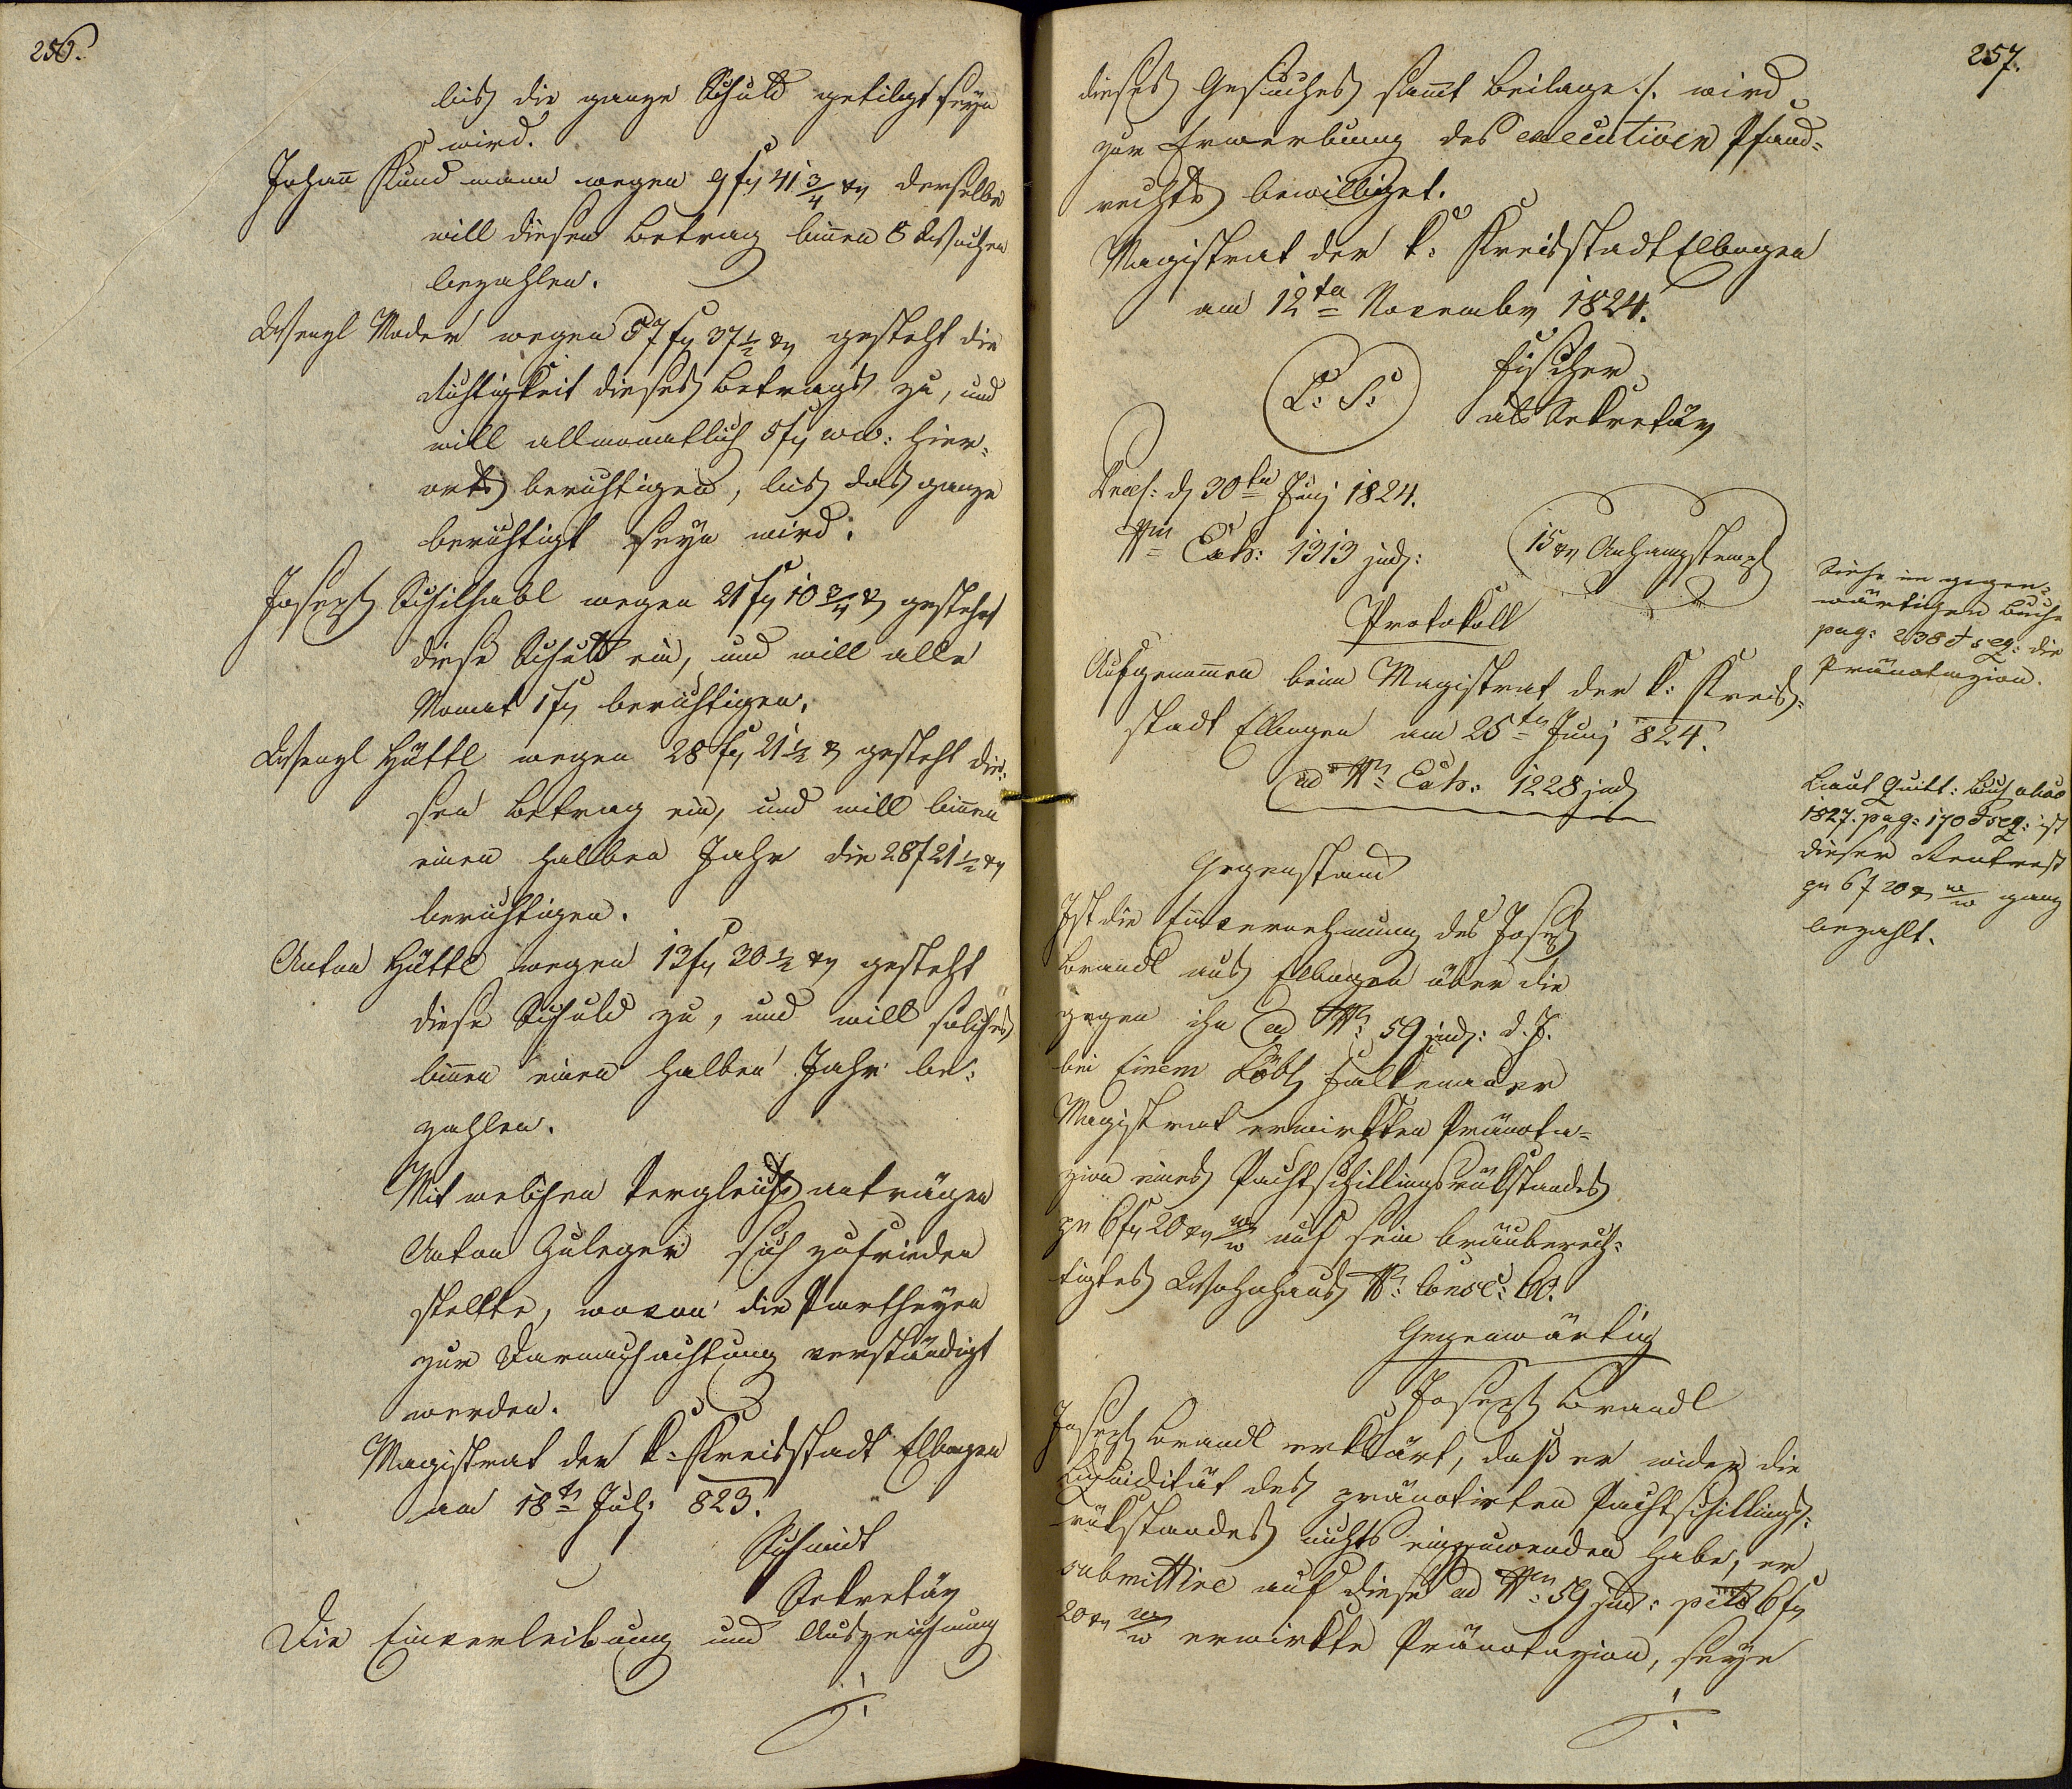 256.
bis die ganze Schuld getilgt seyn
wird.
Johan̄ Kund mann wegen 9 fy 41 3/4 xr derselbe
will diesen Betrag bin̄en 8 Wochen
bezahlen.
Wenzl Moder wegen 57 fy 37 1/2 xr gesteht die
Richtigkeit dieses Betrags zu, und
will allmonatlich 5 fy WW: hier-
orts berichtigen, bis das ganze
berichtigt seyn wird.
Joseph Schilhabl wegen 21 fy 10 3/4 x gesteht
diese Schuld ein, und will alle
Monat 1 fy berichtigen.
Wenzl Hüttl wegen 28 fy 21 1/2 x gesteht die-
sen Betrag ein, und will bin̄en
einen halben Jahr die 28 f 21 1/2 xr
berichtigen.
Anton Hüttl wegen 13 fy 30 1/2 xr gesteht
diese Schuld zu, und will solches
bin̄en einen halben Jahr be-
zahlen.
Mit welchen Vergleichs anträgen
Anton Zuleger sich zufrieden
stellte, wovon die Partheyen
zur Darnachachtung verständigt
werden.
Magistrat der k: Kreisstadt Elbogen
am 18tn Juli 823.
Schmidt
Sekretär
Die Einverleibung und Auszeichnung
./.
257.
dieses Gesuches sam̄t Beilage ./. wird
zur Erwerbung des executiven Pfand-
rechts bewilliget.
Magistrat der k: Kreisstadt Elbogen
am 12ten Novembr 1824.
L: S:
Fischer
als Sekretär
Praes: d 30ten Juni 1824.
Nro Exh: 1313 jud:
15 xr Anhangstempl
Protokoll
Aufgenom̄en beim Magistrat der k: Kreis-
stadt Elbogen am 25tn Juni 824.
ad Nr Exh: 1228 jud
Gegenstand
Ist die Einvernehmung des Joseph
Brandl aus Elbogen über die
gegen ihn ad Nr 59 jud: d. J.
bei Einem Löbl Falkenauer
Magistrat erwirkten Pränota-
zion eines Pachtschillingsrükstandes
zu 6 fy 20 xr W/W auf sein bräuberech-
tigtes Wohnhaus Nr: Consc: 60.
Gegenwärtig
Joseph Brandl
Joseph Brandl erklärt, daß er wider die
Liquidität des pränotirten Pachtschillings-
rükstandes nichts einzuwenden habe, er
submittire auf diese ad Nro 59 jud: pcto 6 fy
20 xr W/W erwirkte Pränotazion, seye
./.
Siehe im gegen-
wärtigen Buche
pag: 238 et seq: die
Pränotazion.
Laut Quitt: Buch
1827. pag: 170 et seq: ist
dieser Restrest
zu 6 f 20 x W/W ganz
bezahlt.